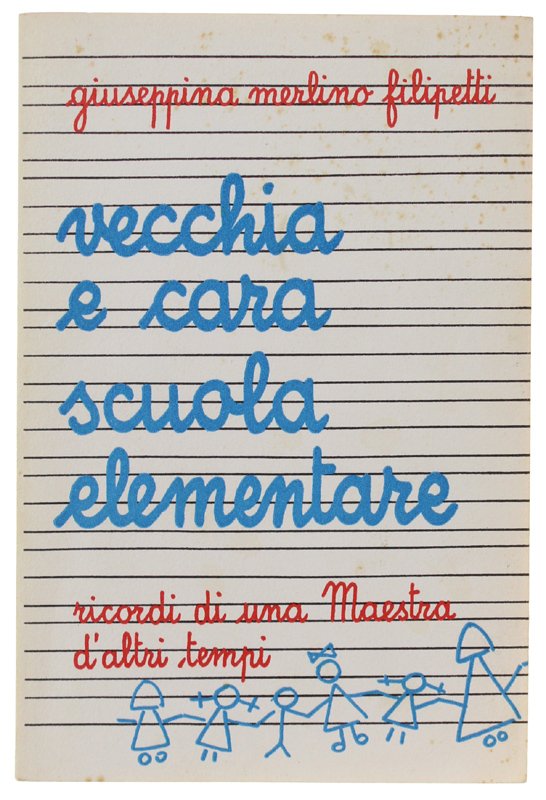 giuseppina merlino filipetti
vecchia
e cara
scuola
elementare
ricordi di una Maestra
d'altri tempi